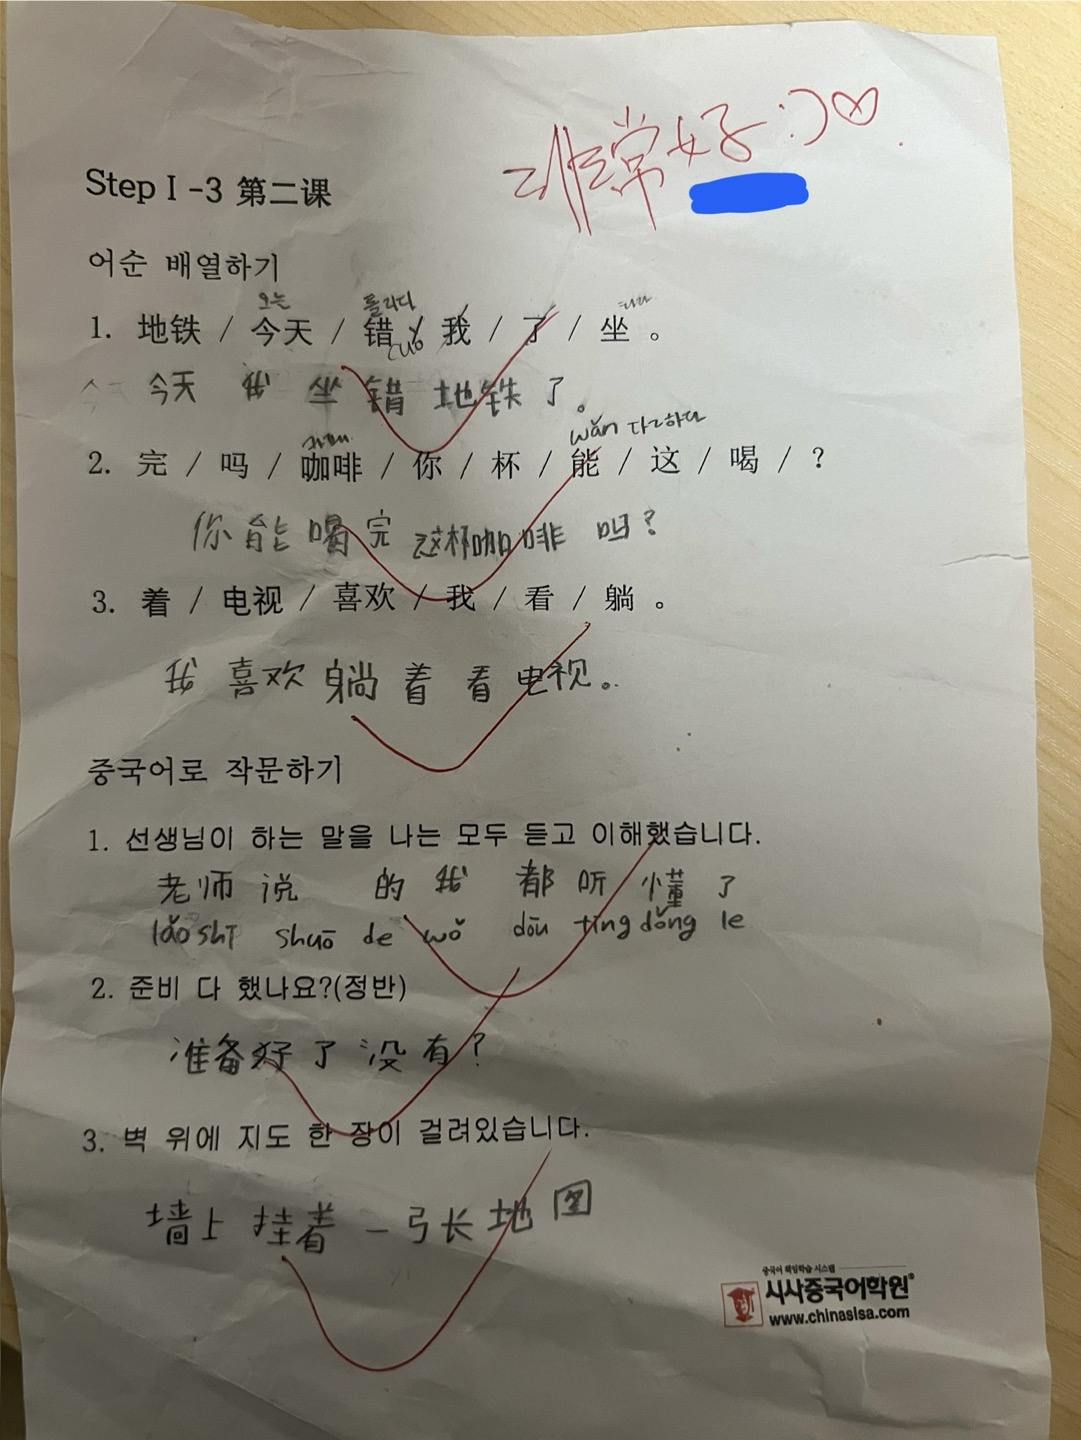 非常好 :) ♡
Step I -3 第二课
어순 배열하기
오늘 틀리다
1. 地铁 / 今天 / 错 / 我 / 了 / 坐 。
cuò
今天 我 坐 错 地铁 了。
wǎn 다하다
2. 完 / 吗 / 咖啡 / 你 / 杯 / 能 / 这 / 喝 / ?
你 能 喝 完 这杯咖啡 吗?
3. 着 / 电视 / 喜欢 / 我 / 看 / 躺 。
我 喜欢 躺 着 看 电视。
중국어로 작문하기
1. 선생님이 하는 말을 나는 모두 듣고 이해했습니다.
老师 说 的 我 都 听 懂 了
lǎo shī shuō de wǒ dōu tīng dǒng le
2. 준비 다 했나요?(정반)
准备好 了 没 有?
3. 벽 위에 지도 한 장이 걸려있습니다.
墙上 挂着 一张 地图
중국어 책임학습 시스템
시사중국어학원®
www.chinasisa.com